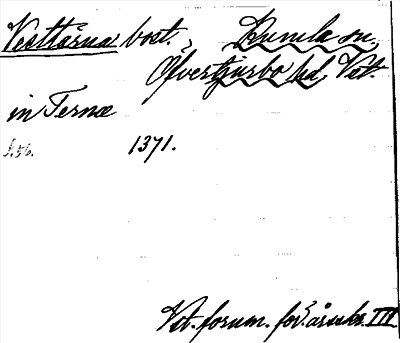 Västtärna bost. Kumla sn,
Öfvertjurbo hd, Vst.
in Ternæ
s. 56. 1371.
Vst. fornm. för. årsskr. III